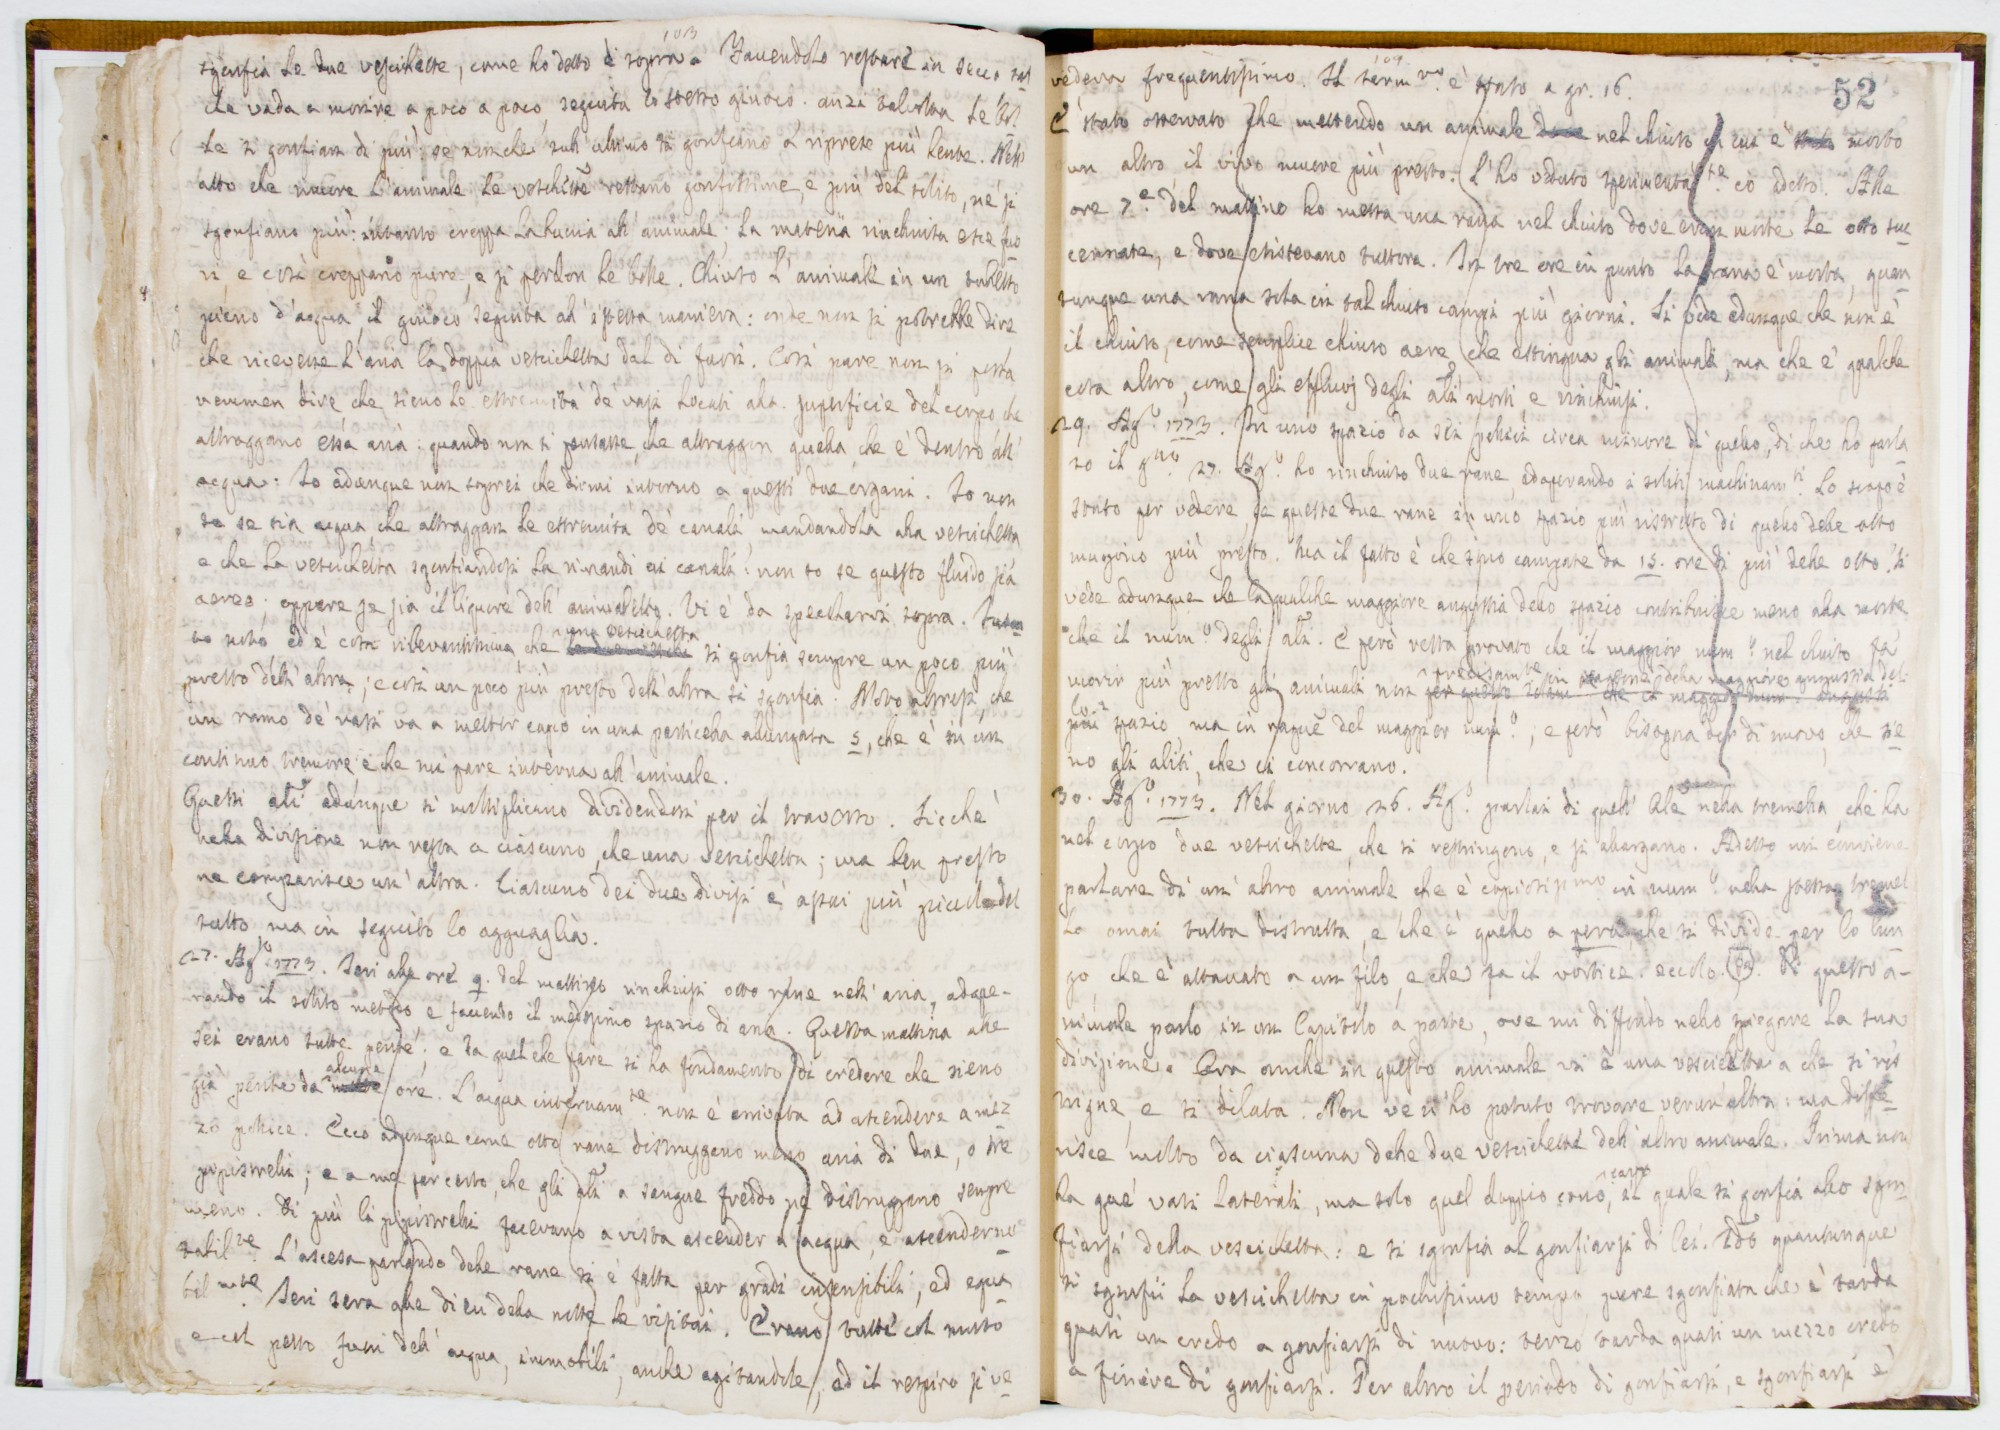 103
sgonfia le due vescichette, come ho detto di sopra. Facendolo restare in secco tal
che vada a morire a poco a poco, seguita lo stesso giuoco. anzi talvolta le bol
le si gonfian di più: se non che sull'ultimo si gonfiano a riprese più lente. Nell'
atto che muore l'animale le vescichette restano gonfissime, e più del solito, nè si
sgonfiano più: intanto creppa la buccia all'animale; la materia rinchiusa esce fuo
ri, e così creppano pure, e si perdon le bolle. Chiuso l'animale in un tubetto
pieno d'acqua, il giuoco seguita all'istessa maniera: onde non si potrebbe dire
che ricevesse l'aria la doppia vescichetta dal di fuori. Così pure non si potrà
nemmen dire che sieno le estremità de' vasi locati alla superficie del corpo che
attraggano essa aria: quando non si pensasse, che attraggon quella che è dentro all'
acqua: Io adunque non saprei che dirmi intorno a questi due organi. Io non
so se sia acqua, che attraggan le estremità de' canali, mandandola alla vescichetta
e che la vescichetta sgonfiandosi la rimandi ai canali: non so se questo fluido sia
aereo; oppure se sia il liquore dell'animaletto. Vi è da specularvi sopra. Intan
to noto, ed è cosa rilevantissima, che una vescichetta si gonfia sempre un poco più
presto dell'altra; e così un poco più presto dell'altra si sgonfia. Noto altresì, che
un ramo de' vasi va a metter capo in una particella allungata 5, che è in un
continuo tremore e che mi pare interna all'animale.
Questi ali adunque si moltiplicano dividendosi per il traverso. Sicchè
nella divisione non resta a ciascuno, che una vescichetta; ma ben presto
ne comparisce un'altra. Ciascuno dei due divisi è assai più piccolo del
tutto, ma in seguito lo agguaglia.
27. Ag.to 1773. Ieri alle ore 9. del mattino rinchiusi otto rane nell'aria, adope-
rando il solito metodo e facendo il medesimo spazio di aria. Questa mattina alle
sei erano tutte perite: e da quel che pare si ha fondamento di credere che sieno
già perite da alcune ore. L'acqua internam.te non è arrivata ad ascendere a mez
zo pollice. Ecco adunque come otto rane distruggono meno aria di due, o tre
pipistrelli; e a me par certo, che gli ali a sangue freddo ne distruggano sempre
meno. Di più li pipistrelli facevano a vista ascender l'acqua, e ascendere no
tabil.te L'ascesa parlando delle rane si è fatta per gradi insensibili, ed equa
bil.m.te Ieri sera alle dieci della notte le visitai. Erano tutte col muso
e col petto fuori dell'acqua, immobili, anche agitandole, ed il respiro si ve
104
52
vedeva frequentissimo. Il term.ro è stato a gr. 16.
È stato osservato che mettendo un animale nel chiuso in cui è morto
un altro, il vivo muore più presto. L'ho veduto sperimentalm.te cò adesso. Alle
ore 7.e del mattino ho messa una rana nel chiuso dove eran morte le otto suc
cennate, e dove esistevano tuttora. In tre ore in punto la rana è morta, quan
tunque una rana sola in tal chiuso campi più giorni. Si vede adunque che non è
il chiuso, come semplice chiuso aere, che estingua gli animali, ma che è qualche
cosa altro, come gli effluvj degli ali morti e rinchiusi.
29. Ag.o 1773. In uno spazio da sei pollici circa minore di quello, di che ho parla
to il g.no 27. Ag.o ho rinchiuso due rane, adoperando i soliti machinam.ti Lo scopo è
stato per vedere, se queste due rane in uno spazio più ristretto di quello delle otto
muojono più presto. Ma il fatto è che sono campate da 15. ore di più delle otto. Si
vede adunque che la qualche maggiore angustia dello spazio contribuisce meno alla morte
che il num.o degli ali. E però resta provato che il maggior num.o nel chiuso fa
morir più presto gli animali non precisam.te in ragione della maggiore angustia del
lo spazio, ma in ragne del maggior num.o, e però bisogna dir di nuovo, che sie
no gli aliti, che ci concorrano.
30. Ag.o 1773. Nel giorno 26. Ag.o parlai di quell'ale nella tremella, che ha
nel corpo due vescichette, che si restringono, e si allargano. Adesso mi conviene
parlare di un altro animale che è copiosissimo in num.o nella stessa tremel
la omai tutta distrutta, e che è quello a pera che si divide per lo lun
go che è attaccato a un filo, e che fa il vortice. eccolo. Di questo a-
nimale parlo in un Capitolo a parte, ove mi diffondo nello spiegare la sua
divisione. Ora anche in questo animale vi è una vescichetta a che si res
tringne, e si dilata. Non ve n'ho potuto trovare verun'altra: ma diffe
risce molto da ciascuna delle due vescichette dell'altro animale. Prima non
ha que' vasi laterali, ma solo quel doppio cono, il quale si gonfia allo sgon
fiarsi della vescichetta: e si sgonfia al gonfiarsi di lei. quantunque
si sgonfii la vescichetta in pochissimo tempo pure sgonfiata che è tarda
quasi un credo a gonfiarsi di nuovo: verso tarda quasi un mezzo credo
a finire di gonfiarsi. Per altro il periodo di gonfiarsi, e sgonfiarsi è